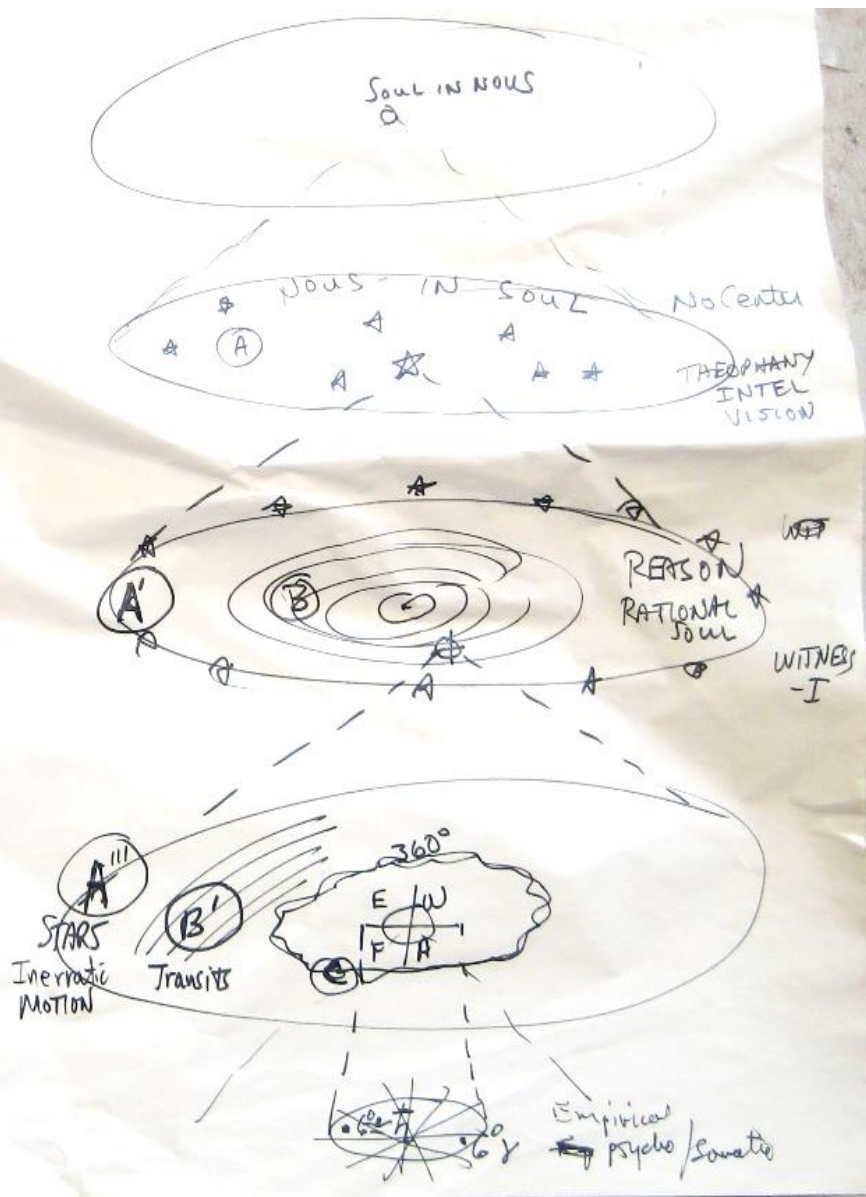 SOUL IN NOUS
NOUS - IN SOUL
No Center
A
THEOPHANY
INTEL
VISION
A'
B
REASON
RATIONAL
SOUL
WITNESS
-I
360°
A'''
E W
B'
F A
STARS
Inerratic
MOTION
Transits
C
6°
6° γ
Empirical
psycho/Somatic